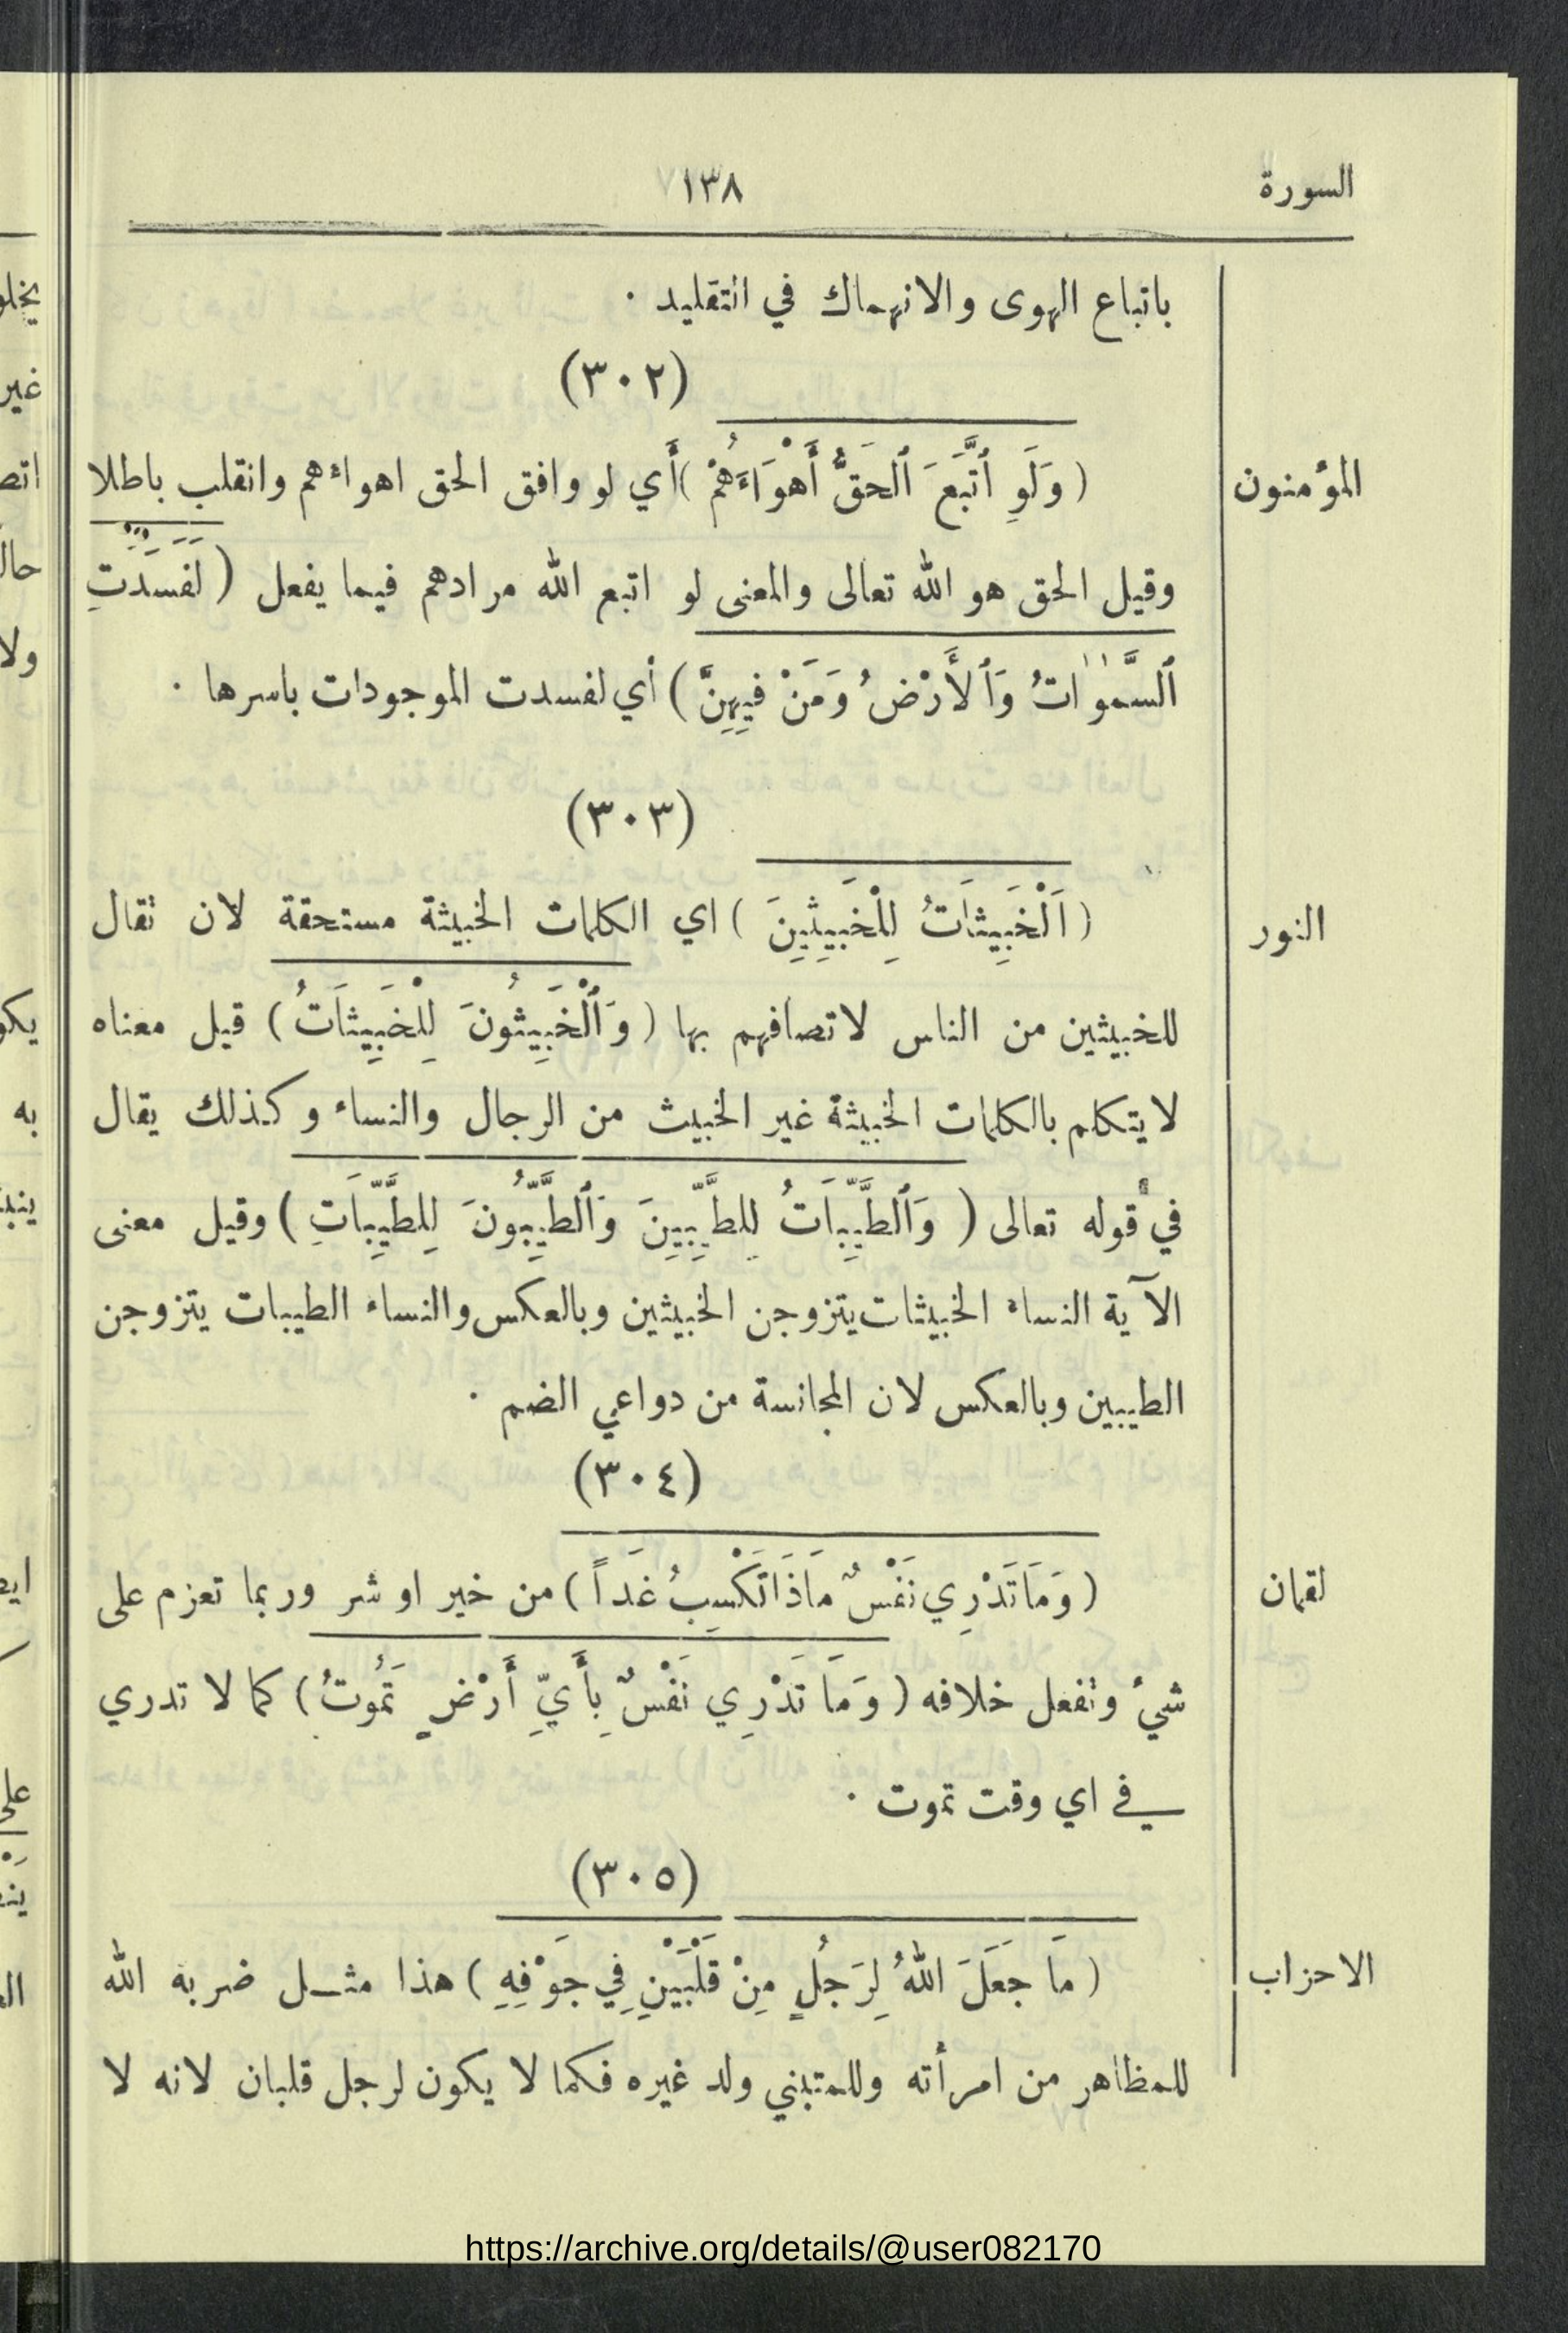 السورة
١٣٨
باتباع الهوى والانهماك في التقليد .
(٣٠٢)
المؤمنون
( وَلَوِ ٱتَّبَعَ ٱلحَقُّ أَهْوَاءَهُمْ ) أَي لو وافق الحق اهواءهم وانقلب باطلا
وقيل الحق هو الله تعالى والمعنى لو اتبع الله مرادهم فيما يفعل ( لَفَسَدَتِ
ٱلسَّمٰوٰاتُ وَٱلأَرْضُ وَمَنْ فِيهِنَّ ) أي لفسدت الموجودات باسرها .
(٣٠٣)
النور
( اَلْخَبِيثَاتُ لِلْخَبِيثِينَ ) اي الكلمات الخبيثة مستحقة لان تقال
للخبيثين من الناس لاتصافهم بها ( وَٱلْخَبِيثُونَ لِلْخَبِيثَاتُ ) قيل معناه
لا يتكلم بالكلمات الخبيثة غير الخبيث من الرجال والنساء وكذلك يقال
في قوله تعالى ( وَٱلطَّيِّبَاتُ لِلطَّيِّبِينَ وَٱلطَّيِّبُونَ لِلطَّيِّبَاتِ ) وقيل معنى
الآية النساء الخبيثات يتزوجن الخبيثين وبالعكس والنساء الطيبات يتزوجن
الطيبين وبالعكس لان المجانسة من دواعي الضم .
(٣٠٤)
لقمان
( وَمَا تَدْرِي نَفْسٌ مَاذَا تَكْسِبُ غَداً ) من خير او شر وربما تعزم على
شيءٍ وتفعل خلافه ( وَمَا تَدْرِي نَفْسٌ بِأَيِّ أَرْضٍ تَمُوتُ ) كما لا تدري
في اي وقت تموت .
(٣٠٥)
الاحزاب
( مَا جَعَلَ اللهُ لِرَجُلٍ مِنْ قَلْبَيْنِ فِي جَوْفِهِ ) هذا مثل ضربه الله
للمظاهر من امرأته وللمتبني ولد غيره فكما لا يكون لرجل قلبان لانه لا
https://archive.org/details/@user082170